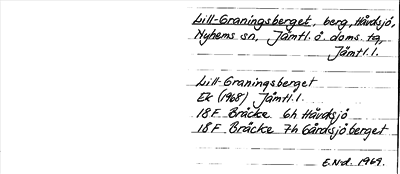 Lill-Graningsberget, berg, Håvdsjö,
Nyhems sn, Jämtl. ö. doms. tg,
Jämtl. l.
Lill-Graningsberget
Ek (1968) Jämtl. l.
18 F Bräcke 6h Håvdsjö
18 F Bräcke 7h Gårdsjöberget
E. Nd. 1969.